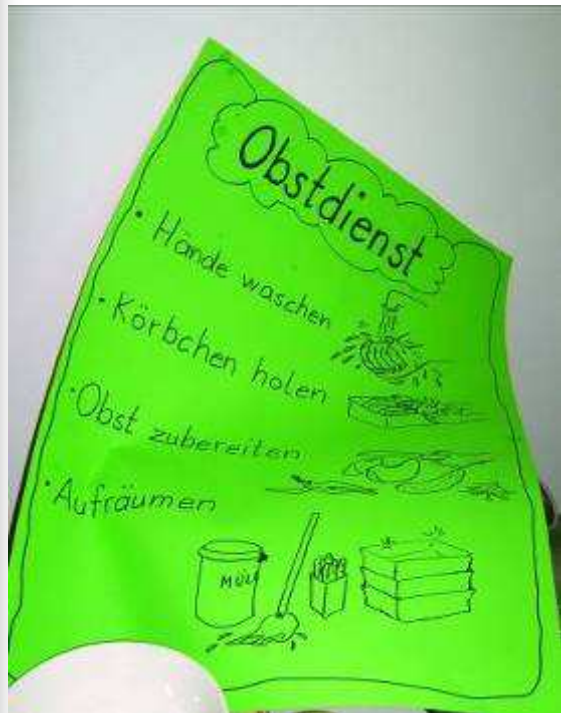 Obstdienst
• Hände waschen
• Körbchen holen
• Obst zubereiten
• Aufräumen
MÜLL